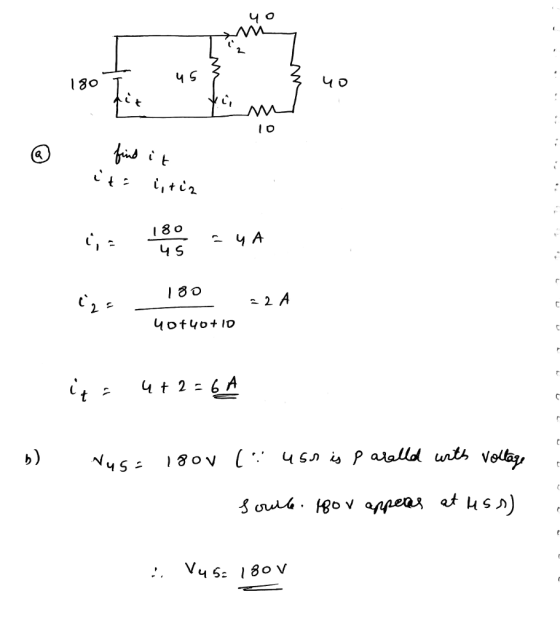 40
i2
180
45
40
it
i1
10
(a) find it
it = i1 + i2
i1 = 180 / 45 = 4 A
i2 = 180 / 40+40+10 = 2 A
it = 4 + 2 = 6 A
b) V45 = 180V (∵ 45Ω is parallel with voltage
source. 180V appears at 45Ω)
∴ V45 = 180V